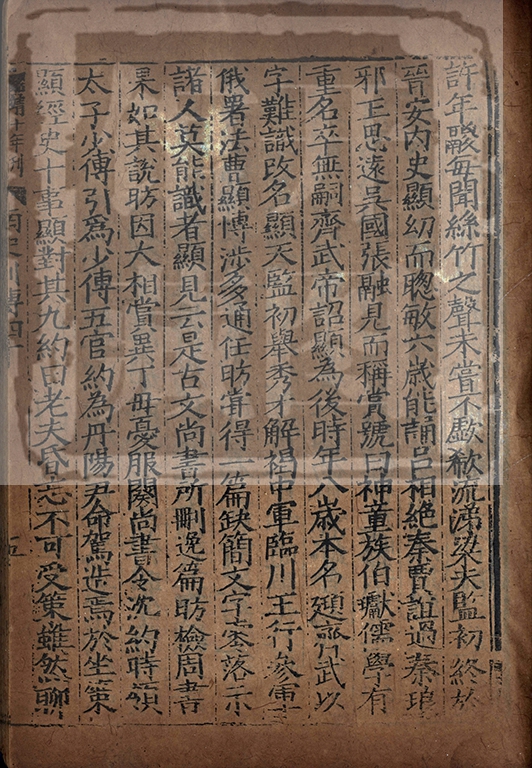 許年齡每聞絲竹之聲未嘗不歔欷流涕梁天監初終於
晉安内史顯幼而聰敏六歳能誦吕相絶秦賈誼過秦琅
邪王思遠吳國張融見而稱賞號曰神童族伯瓛儒學有
重名卒無嗣齊武帝詔顯為後時年八歳本名頲齊武以
字難識改名顯天監初舉秀才解褐中軍臨川王行參軍
俄署法曹顯博渉多通任昉甞得一篇缺簡文字零落示
諸人莫能識者顯見云是古文尚書所刪逸篇昉檢周書
果如其說昉因大相賞異丁母憂服闋尚書令沈約時領
太子少傅引為少傅五官約為丹陽尹命駕造焉於坐策
顯經史十事顯對其九約曰老夫昏忘不可受策雖然聊
南史列傳四十
五